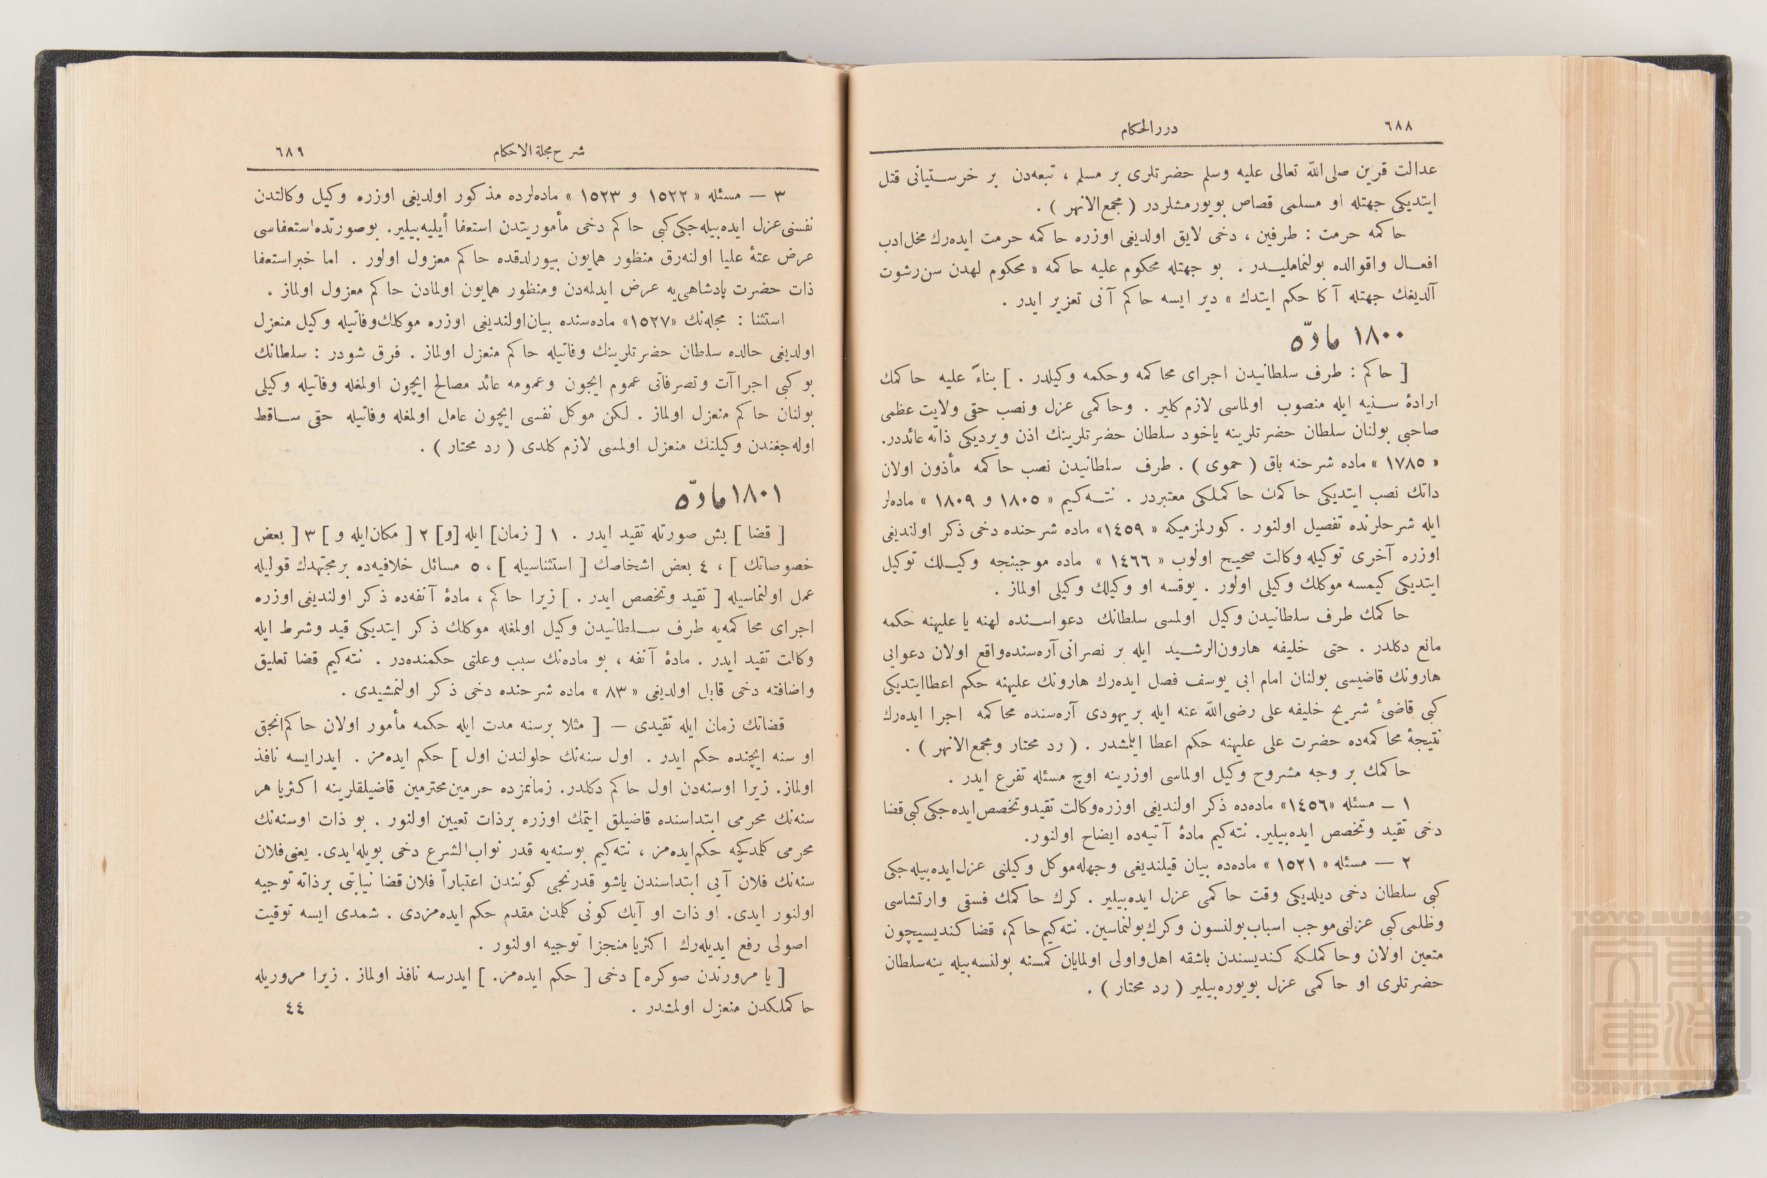 ٦٨٨
دررالحكام
عدالت قرين صلى‌الله تعالى عليه وسلم حضرتلرى بر مسلم ، تبعه‌دن بر خرستيانى قتل
ايتديكى جهتله او مسلمى قصاص بويورمشلردر ( مجمع‌الانهر ) .
حاكمه حرمت : طرفين ، دخى لايق اولديغى اوزره حاكمه حرمت ايده‌رك مخل‌ادب
افعال واقوالده بولنماملیدر . بو جهتله محكوم عليه حاكمه « محكوم لهدن سن‌رشوت
آلديغك جهتله آكا حكم ايتدك » دير ايسه حاكم آنى تعزير ايدر .
١٨٠٠ مادّه
[ حاكم : طرف سلطانيدن اجراى محاكمه وحكمه وكيلدر . ] بناءً عليه حاكمك
ارادۀ سنيه ايله منصوب اولماسى لازم كلير . وحاكمى عزل ونصب حقى ولايت عظمى
صاحبى بولنان سلطان حضرتلرينه ياخود سلطان حضرتلرينك اذن ويرديكى ذاته عائددر.
« ١٧٨٥ » ماده شرحنه باق ( حموى ) . طرف سلطانيدن نصب حاكمه مأذون اولان
ذاتك نصب ايتديكى حاكمك حاكملكى معتبردر . نته‌كيم « ١٨٠٥ و ١٨٠٩ » ماده‌لر
ايله شرحلرنده تفصيل اولنور . كورلمزميكه « ١٤٥٩» ماده شرحنده دخى ذكر اولنديغى
اوزره آخرى توكيله وكالت صحيح اولوب « ١٤٦٦ » ماده موجبنجه وكيلك توكيل
ايتديكى كيمسه موكلك وكيلى اولور . يوقسه او وكيلك وكيلى اولماز .
حاكمك طرف سلطانيدن وكيل اولمسى سلطانك دعواسنده لهنه يا عليهنه حكمه
مانع دكلدر . حتى خليفه هارون‌الرشيد ايله بر نصرانى آره‌سنده‌واقع اولان دعوايى
هارونك قاضيسى بولنان امام ابى يوسف فصل ايده‌رك هارونك عليهنه حكم اعطاايتديكى
كبى قاضئ شريح خليفه على رضى‌الله عنه ايله بريهودى آره‌سنده محاكمه اجرا ايده‌رك
نتيجۀ محاكمه‌ده حضرت على عليهنه حكم اعطا ايلمشدر . ( رد محتار ومجمع‌الانهر ) .
حاكمك بر وجه مشروح وكيل اولماسى اوزرينه اوچ مسئله تفرع ايدر .
١ – مسئله «١٤٥٦» ماده‌ده ذكر اولنديغى اوزره‌وكالت تقيدوتخصص‌ايده‌جكى‌كبى‌قضا
دخى تقيد وتخصص ايده‌بيلير. نته‌كيم مادۀ آتيه‌ده ايضاح اولنور.
٢ — مسئله « ١٥٢١ » ماده‌ده بيان قيلنديغى وجهله‌موكل وكيلنى عزل‌ايده‌بيله‌جكى
كبى سلطان دخى ديلديكى وقت حاكمى عزل ايده‌بيلير . كرك حاكمك فسقى وارتشاسى
وظلمى‌كبى عزلنى‌موجب اسباب‌بولنسون وكرك‌بولنماسين. نته‌كيم‌حاكم، قضا كنديسيچون
متعين اولان وحاكملكه كنديسندن باشقه اهل‌واولى اولمايان كمسنه بولنسه‌بيله ينه‌سلطان
حضرتلرى او حاكمى عزل بويوره‌بيلير ( رد محتار ) .
شرح مجلة الاحكام
٦٨٩
٣ — مسئله « ١٥٢٢ و ١٥٢٣ » ماده‌لرده مذكور اولديغى اوزره وكيل وكالتدن
نفسنى‌عزل ايده‌بيله‌جكى‌كبى حاكم دخى مأموريتدن استعفا ايليه‌بيلير. بوصورتده‌استعفاسى
عرض عتبۀ عليا اولنه‌رق منظور همايون بيورلدقده حاكم معزول اولور . اما خبراستعفا
ذات حضرت پادشاهى‌يه عرض ايدلمه‌دن ومنظور همايون اولمادن حاكم معزول اولماز .
استثنا : مجله‌نك «١٥٢٧» ماده‌سنده بيان‌اولنديغى اوزره موكلك‌وفاتيله وكيل منعزل
اولديغى حالده سلطان حضرتلرينك وفاتيله حاكم منعزل اولماز . فرق شودر : سلطانك
بو كبى اجراآت وتصرفاتى عموم ايچون وعمومه عائد مصالح ايچون اولمغله وفاتيله وكيلى
بولنان حاكم منعزل اولماز . لكن موكل نفسى ايچون عامل اولمغله وفاتيله حقى ساقط
اوله‌جغندن وكيلنك منعزل اولمسى لازم كلدى ( رد محتار ) .
١٨٠١ مادّه
[ قضا ] بش صورتله تقيد ايدر . ١ [ زمان] ايله [و] ٢ [ مكان‌ايله و ] ٣ [ بعض
خصوصاتك ] ، ٤ بعض اشخاصك [ استثناسيله ] ، ٥ مسائل خلافيه‌ده برمجتهدك قوليله
عمل اولنماسيله [ تقيد وتخصص ايدر . ] زيرا حاكم ، مادۀ آنفه‌ده ذكر اولنديغى اوزره
اجراى محاكمه‌يه طرف سلطانيدن وكيل اولمغله موكلك ذكر ايتديكى قيد وشرط ايله
وكالت تقيد ايدر . مادۀ آنفه ، بو ماده‌نك سبب وعلتى حكمنده‌در . نته‌كيم قضا تعليق
واضافته دخى قابل اولديغى « ٨٣ » ماده شرحنده دخى ذكر اولنمشيدى .
قضانك زمان ايله تقيدى — [ مثلا برسنه مدت ايله حكمه مأمور اولان حاكم‌انجق
او سنه ايچنده حكم ايدر . اول سنه‌نك حلولندن اول ] حكم ايده‌مز . ايدرايسه نافذ
اولماز. زيرا اوسنه‌دن اول حاكم دكلدر. زمانمزده حرمين‌محترمين قاضيلقلرينه اكثريا هر
سنه‌نك محرمى ابتداسنده قاضيلق ايتمك اوزره برذات تعيين اولنور . بو ذات اوسنه‌نك
محرمى كلمدكچه حكم‌ايده‌مز ، نته‌كيم بوسنه‌يه قدر نواب‌الشرع دخى بويله‌ايدى. يعنى‌فلان
سنه‌نك فلان آيى ابتداسندن ياشو قدرنجى كونندن اعتباراً فلان‌قضا نيابتى برذاته توجيه
اولنور ايدى. او ذات او آيك كونى كلمدن مقدم حكم ايده‌مزدى . شمدى ايسه توقيت
اصولى رفع ايديله‌رك اكثريا منجزا توجيه اولنور .
[ يا مرورندن صوكره ] دخى [ حكم ايده‌مز. ] ايدرسه نافذ اولماز . زيرا مروريله
حاكملكدن منعزل اولمشدر .
٤٤
TOYO BUNKO
東洋文庫
TOYO BUNKO